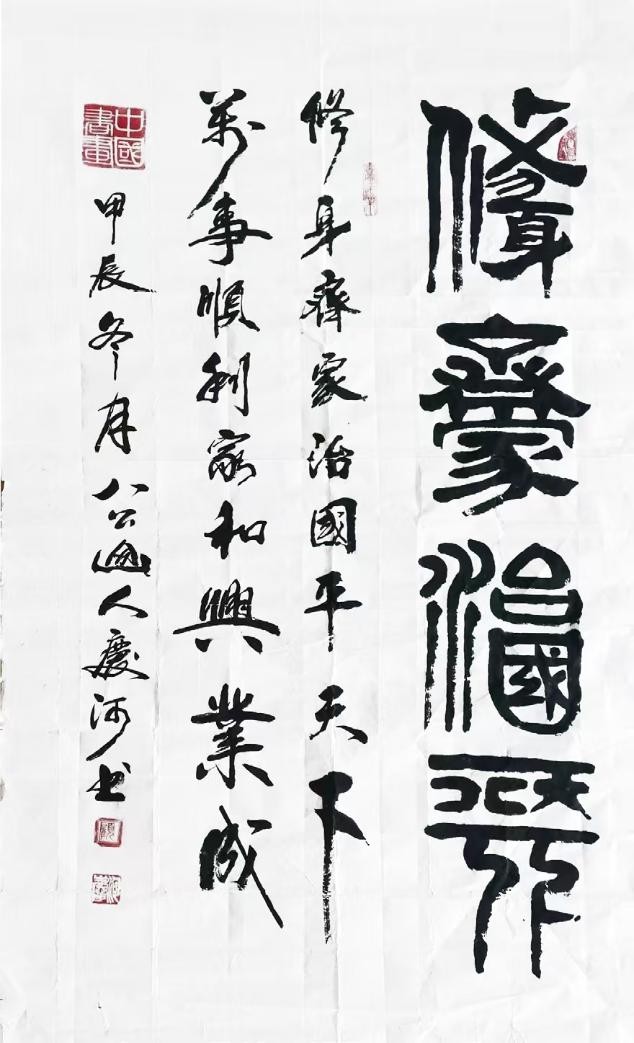 修身齊家治國平天下
修身齊家治國平天下
萬事順利家和興業成
中國書畫
甲辰冬月八公人慶河书